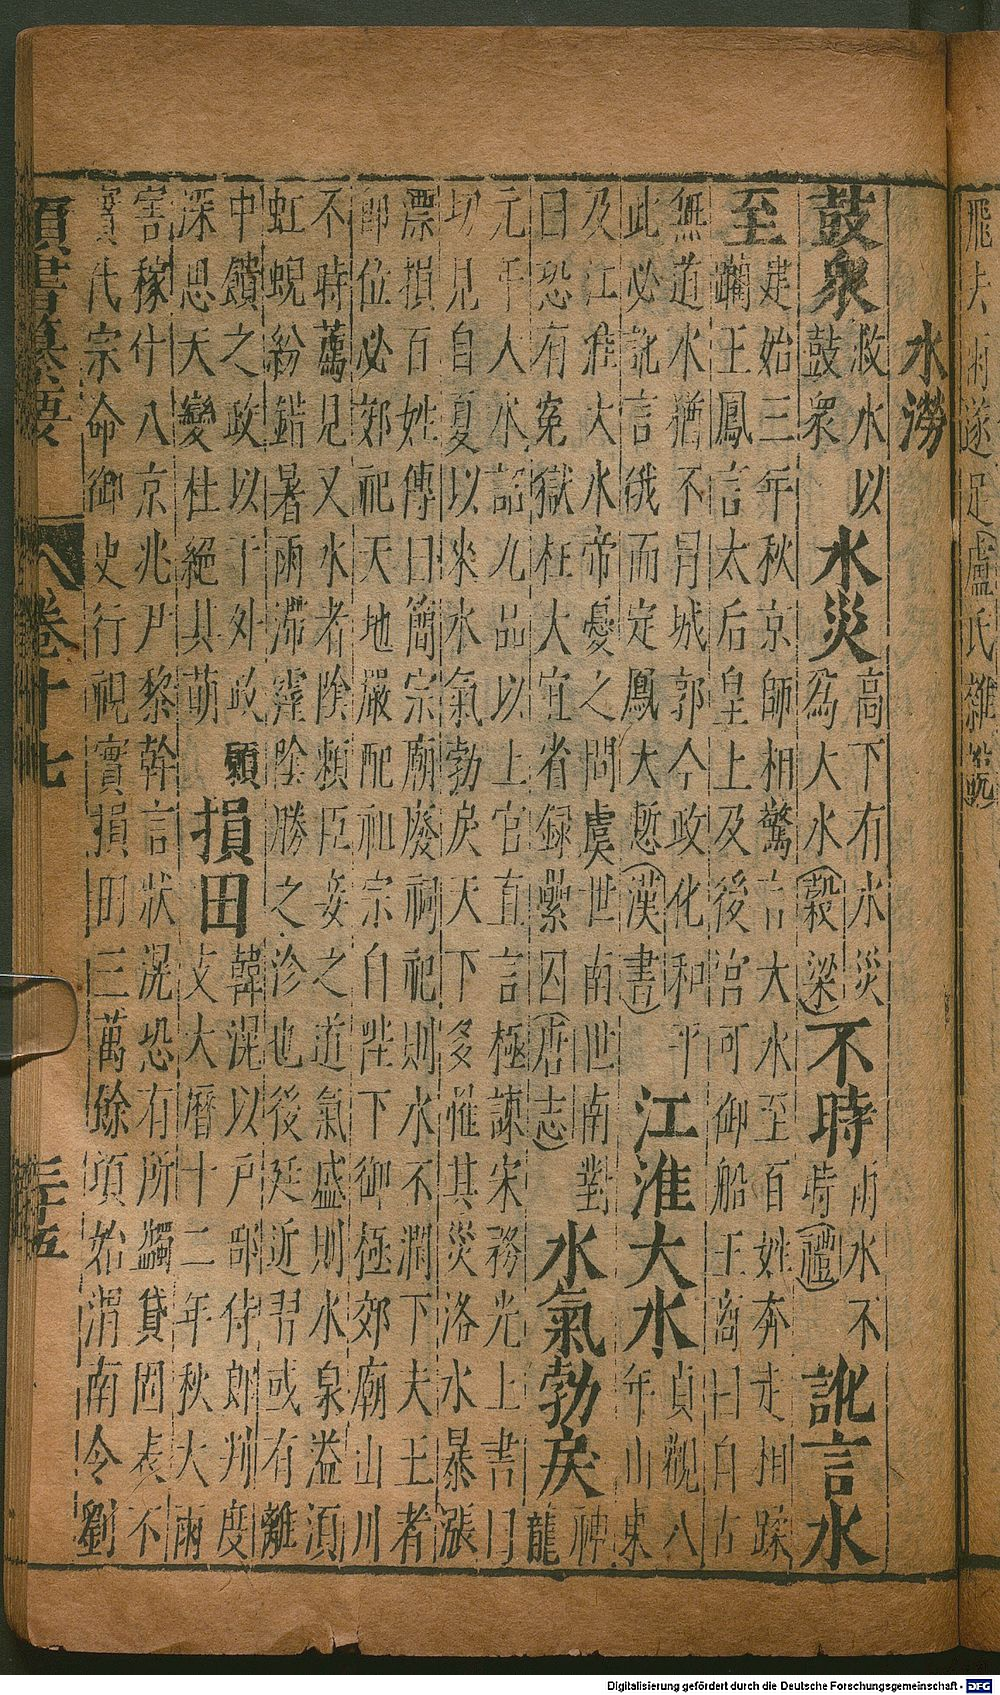 飛去雨遂足(盧氏雜說)
水澇
鼓衆 救水以鼓衆 水災 高下有水災爲大水(穀梁) 不時 雨水不時(禮) 訛言水
至 建始三年秋京師相驚言大水至百姓奔走相蹂躪王鳳言太后皇上及後宮可御船王商曰自古
無道水猶不冐城郭今政化和平此必訛言俄而定鳳大慙(漢書) 江淮大水 貞觀八年山東
及江淮大水帝憂之問虞世南世南對曰恐有冤獄枉大宜省録纍囚(唐志) 水氣勃戾 神龍
元年大水詔九品以上官直言極諫宋務光上書曰切見自夏以來水氣勃戾天下多惟其災洛水暴漲
漂損百姓傳曰簡宗廟廢祠祀則水不潤下夫王者即位必郊祀天地嚴配祖宗自陛下御極郊廟山川
不時薦見又水者陰類臣妾之道氣盛則水泉溢湏虹蜺紛錯暑雨滯霪陰勝之沴也後廷近習或有離
中饋之政以干外政願深思天變杜絕其萌 損田 韓滉以戶部侍郎判度支大曆十二年秋大雨
害稼什八京兆尹黎幹言狀滉恐有所蠲貸固表不實代宗命御史行視實損田三萬餘項始渭南令劉
類書纂要 卷十七 三十五
Digitalisierung gefördert durch die Deutsche Forschungsgemeinschaft - DFG